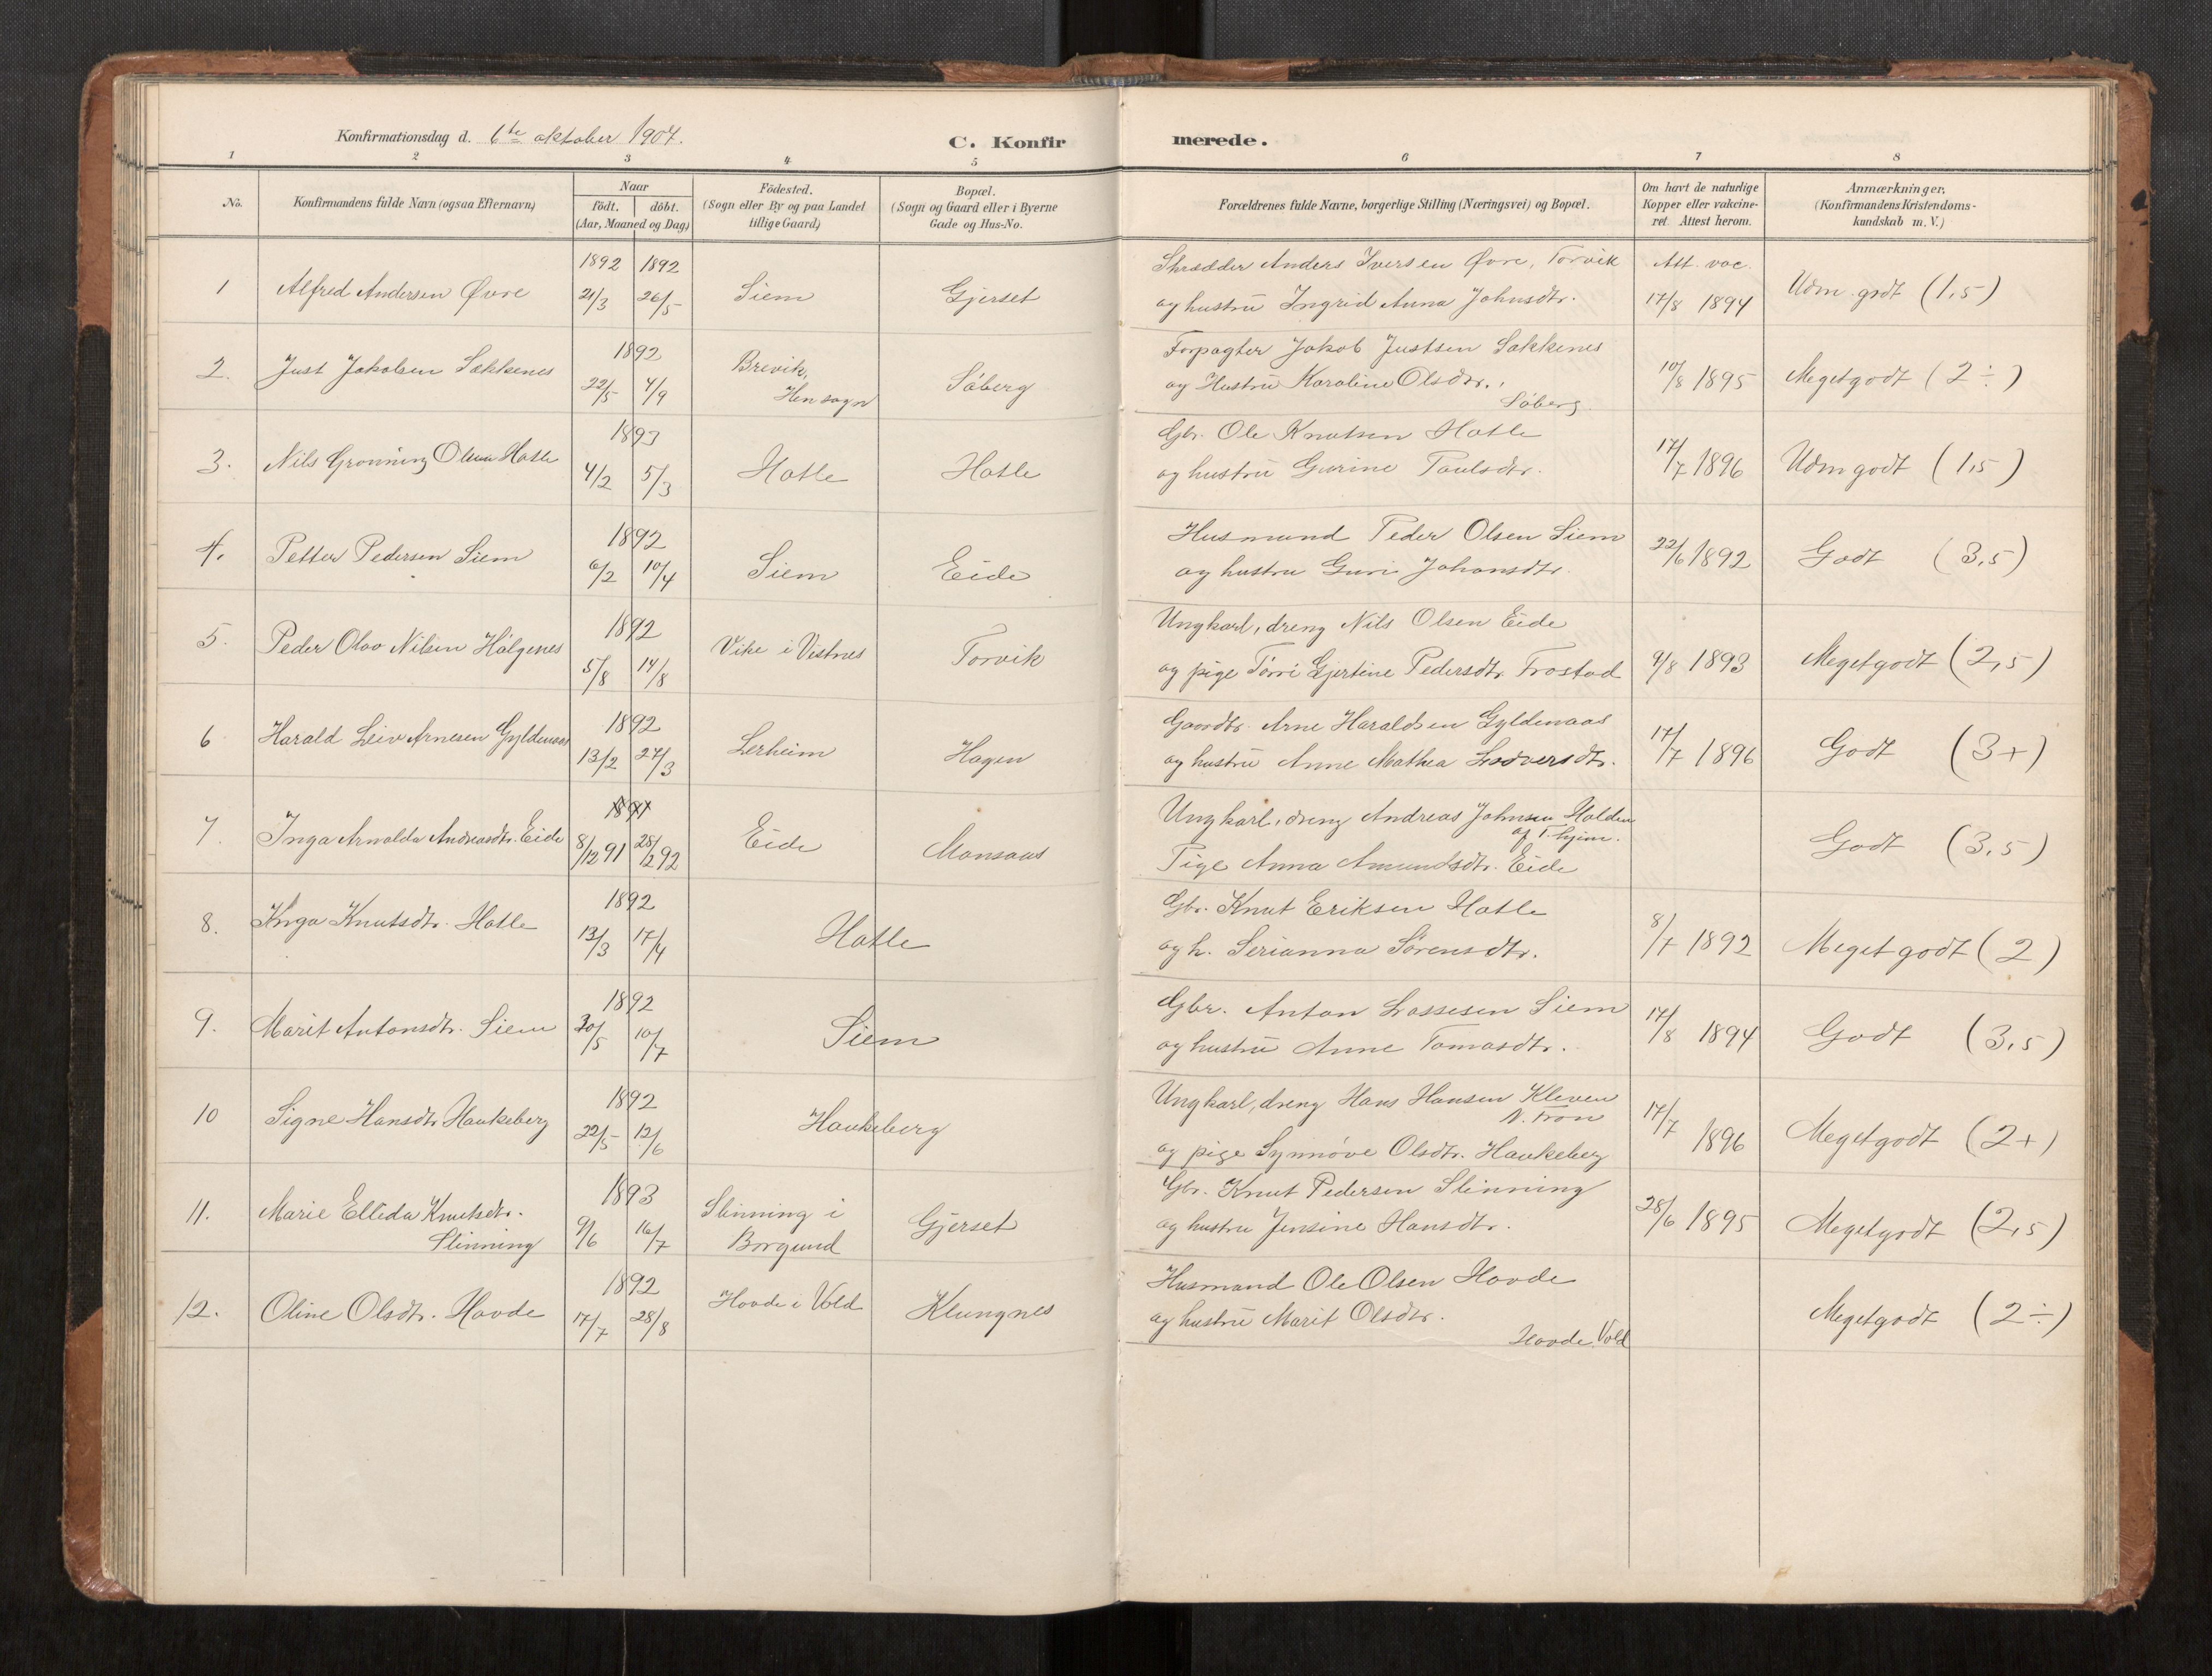 Konfirmationsdag d. 6te oktober 1907.
C. Konfirmerede.
1 2 3 4 5 6 7 8
No.
Konfirmandens fulde Navn (ogsaa Efternavn)
Naar
födt. döbt.
(Aar, Maaned og Dag)
Födested.
(Sogn eller By og paa Landet
tillige Gaard)
Bopæl.
(Sogn og Gaard eller i Byerne
Gade og Hus-No.
Forældrenes fulde Navne, borgerlige Stilling (Næringsvei) og Bopæl.
Om havt de naturlige
Kopper eller vakcine-
ret. Attest herom.
Anmærkninger,
(Konfirmandens Kristendoms-
kundskab m. V.)
1892 1892 Skrædder Anders Iversen Øvre, Torvik Att. vac.
1 Alfred Andersen Øvre 21/3 26/5 Siem Gjerset og hustru Ingrid Anna Johnsdtr. 17/8 1894 Udm. godt (1,5)
1892 Brevik, Forpagter Jakob Justsen Sækkenes
2. Just Jakobsen Sækkenes 22/5 4/9 Hen sogn Söberg og Hustru Karoline Olsdtr., 10/8 1895 Megetgodt (2÷)
Söberg
1893 Gbr. Ole Knutsen Hatle
3. Nils Grønning Olsen Hatle 4/2 5/3 Hatle Hatle og hustru Gurine Paulsdtr. 17/7 1896 Udm godt (1,5)
1892 Husmand Peder Olsen Siem
4. Petter Pedersen Siem 6/2 10/4 Siem Eide og hustru Guri Johansdtr. 22/6 1892 Godt (3,5)
1892 Ungkarl, dreng Nils Olsen Eide
5. Peder Olav Nilsen Hölgenes 5/8 14/8 Vike i Vestnes Torvik og pige Tørri Gjertine Pedersdtr. Frostad 9/8 1893 Megetgodt (2,5)
1892 Gaardbr. Arne Haraldsen Gyldenaas
6 Harald Leiv Arnesen Gyldenaas 13/2 27/3 Lerheim Hagen og hustru Anne Mathea Ladversdtr. 17/7 1896 Godt (3+)
1891 Ungkarl, dreng Andreas Johnsen Holden
af T.hjem.
7. Inga Arnolda Andreasdtr. Eide 8/12 91 28/2 92 Eide Monsaas Pige Anna Amundsdtr. Eide Godt (3,5)
1892 Gbr. Knut Eriksen Hatle
8. Inga Knutsdtr. Hatle 13/3 17/4 Hatle og h. Serianna Sørensdtr. 8/7 1892 Meget godt (2)
1892 Gbr. Anton Lassesen Siem
9. Marit Antonsdtr. Siem 30/5 10/7 Siem og hustru Anne Tomasdtr. 17/8 1894 Godt (3,5)
1892 Ungkarl, dreng Hans Hansen Kleven
N. Fron
10 Signe Hansdtr Haukeberg 22/5 12/6 Haukeberg og pige Synnøve Olsdtr. Haukeberg 17/7 1896 Megetgodt (2+)
1893 Slinning i Gbr. Knut Pedersen Slinning
11. Marie Elleda Knutsdtr. Slinning 9/6 16/7 Borgund Gjerset og hustru Jensine Hansdtr. 28/6 1895 Megetgodt (2,5)
1892 Husmand Ole Olsen Hovde
12. Oline Olsdtr. Hovde 17/7 28/8 Hovde i Vold Klungnes og hustru Marit Olsdtr. Megetgodt (2÷)
Hovde. Vold